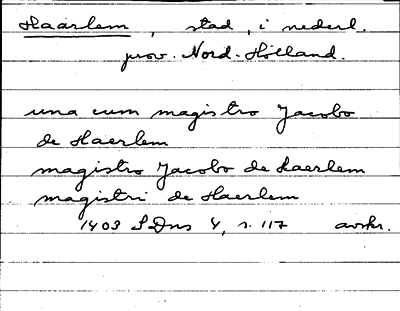 Haarlem, stad, i nederl.
prov. Nord-Holland.
una cum magistro Jacobo
de Haerlem
magistro Jacobo de Haerlem
magistri de Haerlem
1403 SDns 4, s. 117 avskr.